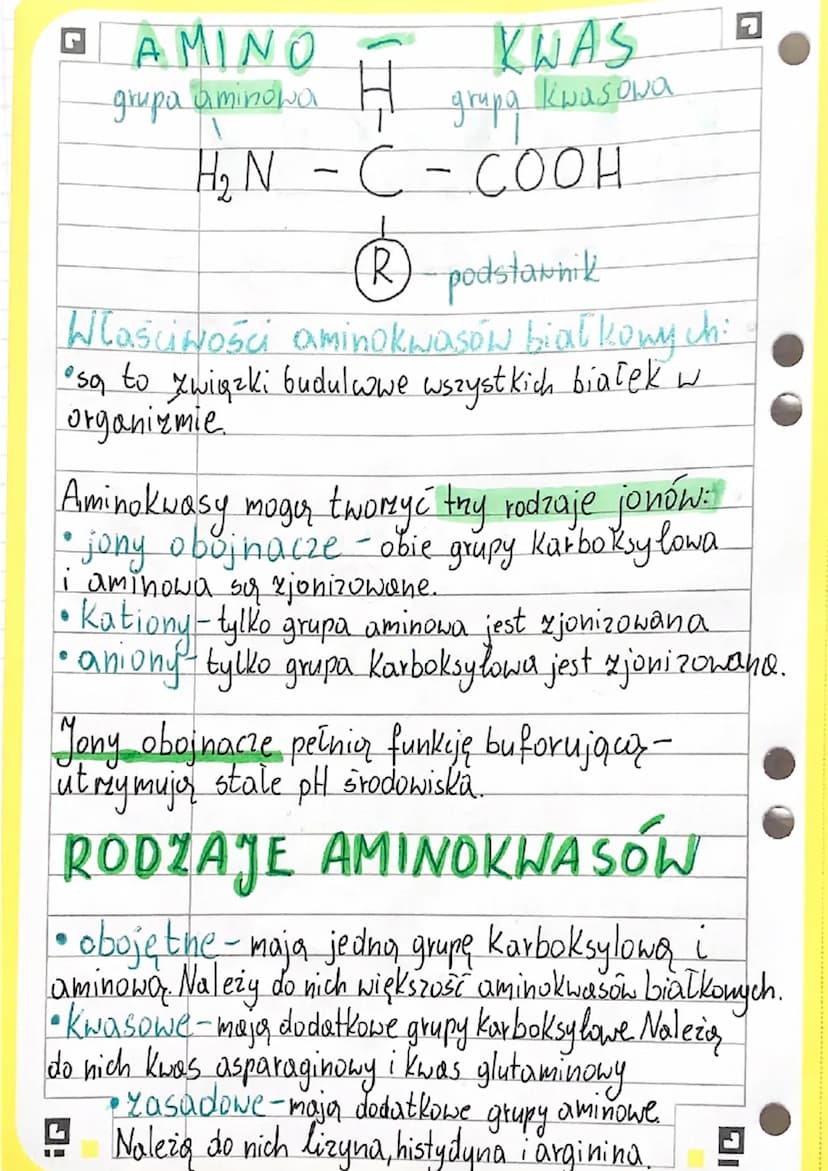 AMINO - KWAS
grupa aminowa H grupa kwasowa
H₂N - C - COOH
R - podstawnik
Właściwości aminokwasów białkowych:
•są to związki budulcowe wszystkich białek w
organizmie.
Aminokwasy mogą tworzyć trzy rodzaje jonów:
• jony obojnacze - obie grupy karboksylowa
i aminowa są zjonizowane.
• kationy - tylko grupa aminowa jest zjonizowana
• aniony - tylko grupa karboksylowa jest zjonizowana.
Jony obojnacze pełnią funkcję buforującą -
utrzymują stałe pH środowiska.
RODZAJE AMINOKWASÓW
• obojętne - mają jedną grupę karboksylową i
aminową. Należy do nich większość aminokwasów białkowych.
• kwasowe - mają dodatkowe grupy karboksylowe. Należą
do nich kwas asparaginowy i kwas glutaminowy
• zasadowe - mają dodatkowe grupy aminowe.
Należą do nich lizyna, histydyna i arginina.